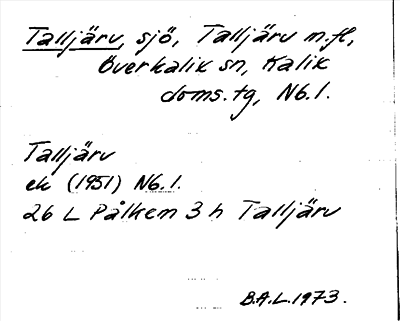 Talljärv, sjö, Talljärv m.fl,
Överkalix sn, Kalix
doms.tg, Nb.l.
Talljärv
ek (1951) Nb.l.
26 L Pålkem 3 h Talljärv
B.A.L.1973.